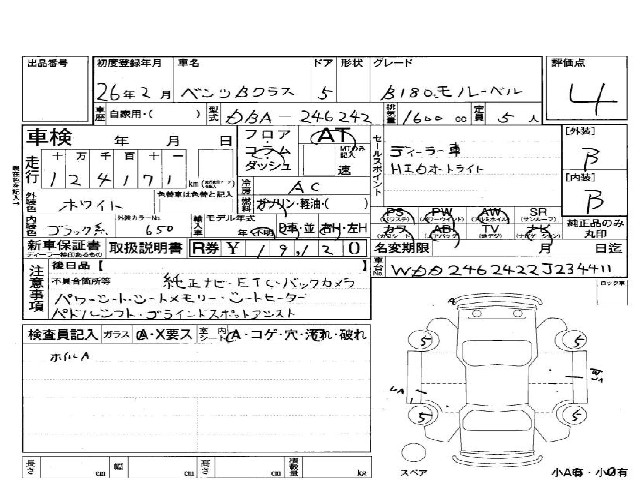 出品番号 初度登録年月 車名 ドア 形状 グレード 評価点
26年2月 ベンツBクラス 5 B180.モノレーベル 4
車歴 自家用・( ) 型式 DBA-246242 排気量 1600 cc 定員 5人
車検 年 月 日 フロア・コラム・ダッシュ AT MTのみ記入 速 セールスポイント ディーラー車 [外装] B
走行 十 万 千 百 十 一 124171 km HIDオートライト
冷房 AC [内装] B
外装色 ホワイト 色替車は色替と記入 燃料 ガソリン・軽油・( )
内装色 ブラック系 外装カラーNo. 650 輸入車 モデル年式 年(不明) D車・並 右H・左H
PS PW AW SR (サンルーフ)
カワ AB TV ナビ 純正品のみ丸印
新車保証書 取扱説明書 R券 ¥ 名変期限 月 日迄
注意事項 後日品【 】 車台No. WDD2462422J234411
不具合箇所等 純正ナビ・ETC・バックカメラ
パワーシート・シートメモリー・シートヒーター
パドルシフト・ブラインドスポットアシスト
ロック車
検査員記入 ガラス A・X要ス 室内 シート A・コゲ・穴・汚れ・破れ
ホイルA
5 5
5 5
スペア
長さ cm 幅 cm 高さ cm 積載量 kg
小A有・小O有